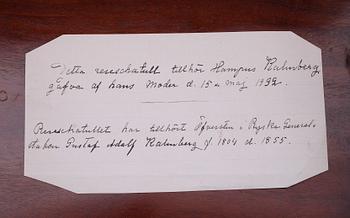 Detta reseschatull tillhör Hampus Kahnberg,
gåfva af hans Moder d. 15 maj 1932.
Reseschatullet har tillhört Öfversten i Ryska General-
staben Gustaf Adolf Kahnberg f. 1804 d. 1855.